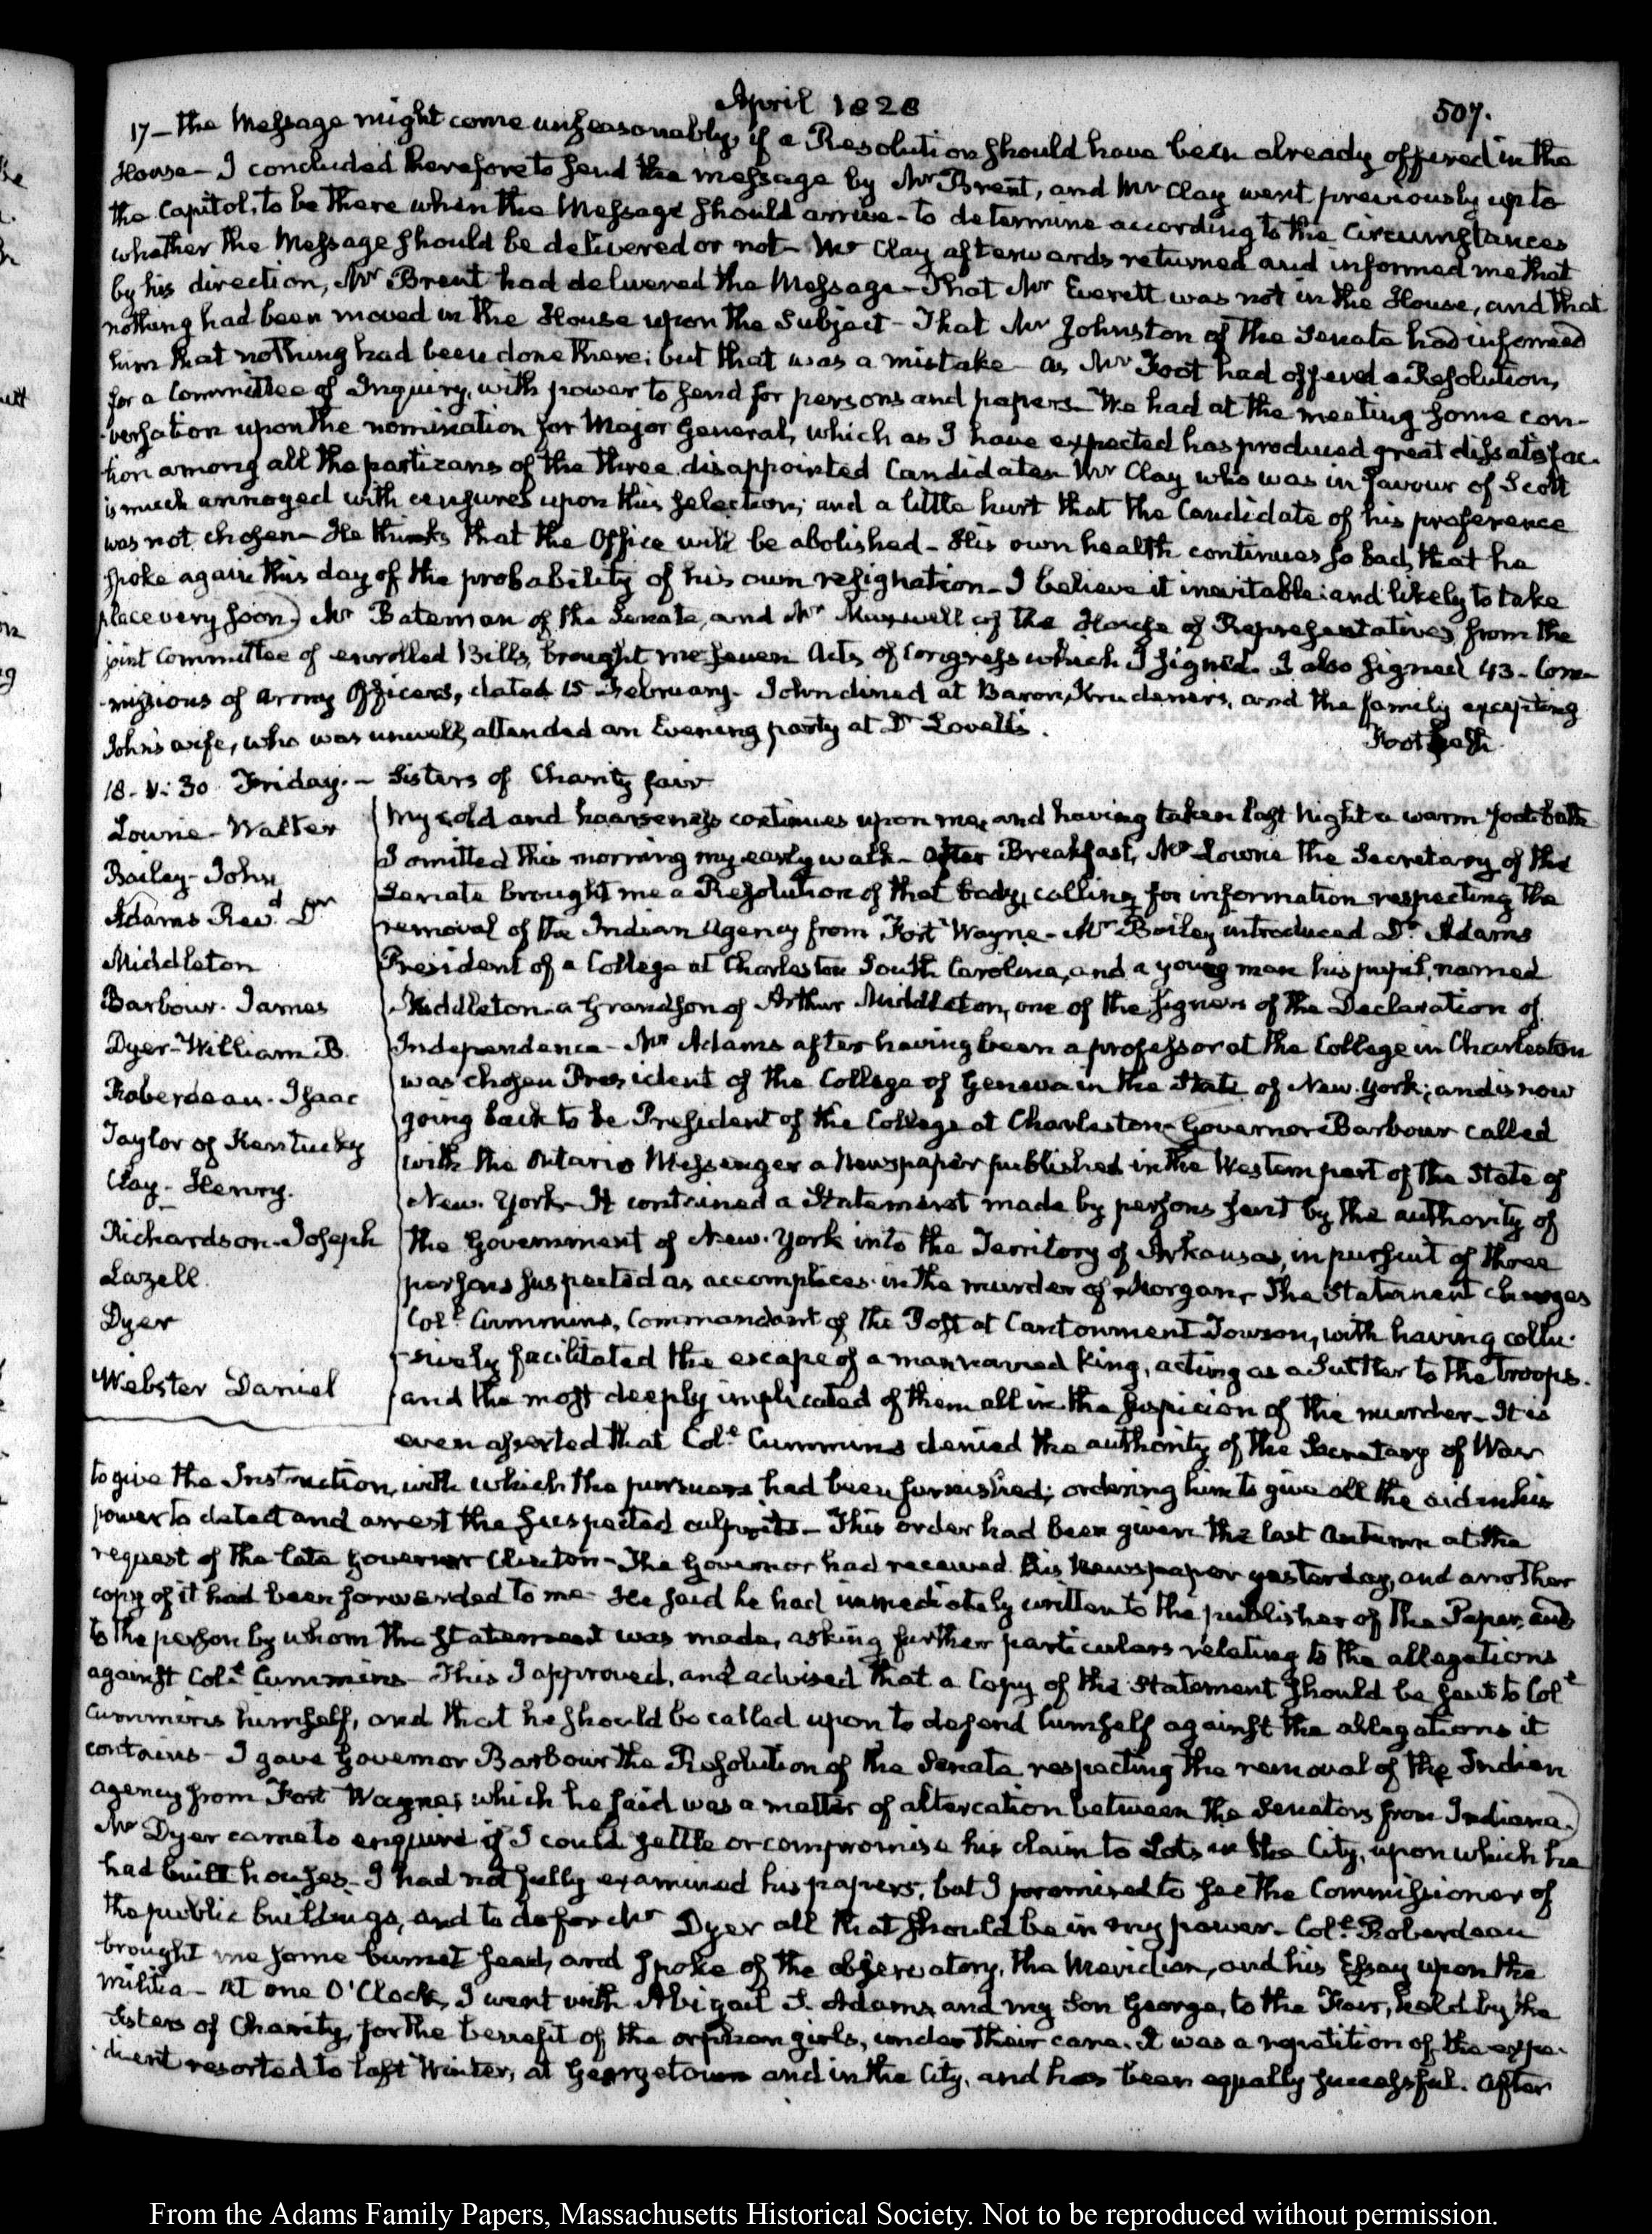 April 1828
507.
17— the Message might come unseasonably, if a Resolution should have been already offered in the
House— I concluded therefore to send the message by Mr Brent, and Mr Clay went previously up to
the Capitol, to be there when the Message should arrive— to determine according to the Circumstances
whether the Message should be delivered or not— Mr Clay afterwards returned and informed me that
by his direction, Mr Brent had delivered the Message— That Mr Everett was not in the House, and that
nothing had been moved in the House upon the Subject— That Mr Johnston of the Senate had informed
him that nothing had been done there; but that was a mistake— as Mr Foot had offered a Resolution,
for a Committee of Inquiry, with power to send for persons and papers— We had at the meeting some con-
-versation upon the nomination for Major General, which as I have expected has produced great dissatisfac-
tion among all the partizans of the three disappointed Candidates— Mr Clay who was in favour of Scott
is much annoyed with censures upon this selection; and a little hurt that the Candidate of his preference
was not chosen— He thinks that the Office will be abolished— His own health continues so bad, that he
spoke again this day of the probability of his own resignation— I believe it inevitable; and likely to take
place very soon) Mr Bateman of the Senate, and Mr Maxwell of the House of Representatives, from the
joint Committee of enrolled Bills, brought me seven Acts of Congress which I signed. I also signed 43— Com-
-missions of Army Officers, dated 15 February— John dined at Baron Krudener's, and the family excepting
John's wife, who was unwell, attended an Evening party at Dr Lovell's.
Foot bath.
18. V: 30 Friday.— Sisters of Charity fair
Lowrie— Walter
Bailey— John
Adams Revd Dr
Middleton
Barbour. James
Dyer— William B.
Roberdeau. Isaac
Taylor of Kentucky
Clay— Henry.
Richardson— Joseph
Lazell.
Dyer
Webster Daniel
My cold and hoarseness continues upon me, and having taken last Night a warm foot bath
I omitted this morning my early walk— After Breakfast, Mr Lowrie the Secretary of the
Senate brought me a Resolution of that body, calling for information respecting the
removal of the Indian Agency from Fort Wayne— Mr Bailey introduced Dr Adams
President of a College at Charleston South Carolina, and a young man his pupil, named
Middleton— a Grandson of Arthur Middleton, one of the signers of the Declaration of
Independence— Mr Adams after having been a professor at the College in Charleston
was chosen President of the College of Geneva in the State of New. York; and is now
going back to be President of the College at Charleston— (Governor Barbour called
with the Ontario Messenger a Newspaper published in the Western part of the State of
New. York— It contained a Statement made by persons sent by the authority of
the Government of New. York into the Territory of Arkansas, in pursuit of three
persons suspected as accomplices in the murder of Morgan— The Statement charges
Colt Cummins, Commandant of the Post at Cantonment Towson, with having collu-
-sively facilitated the escape of a man named King, acting as a Suttler to the troops.
and the most deeply implicated of them all in the suspicion of the murder— It is
even asserted that Colt Cummins denied the authority of the Secretary of War
to give the Instruction, with which the pursuers had been furnished; ordering him to give all the aid in his
power to detect and arrest the suspected culprits— This order had been given the last Autumn at the
request of the late Governor Clinton— The Governor had received this Newspaper yesterday, and another
copy of it had been forwarded to me— He said he had immediately written to the publisher of the Paper, and
to the person by whom the statement was made, asking further particulars relating to the allegations
against Colt Cummins— This I approved, and advised that a Copy of the Statement should be sent to Colt
Cummins himself, and that he should be called upon to defend himself against the allegations it
contains— I gave Governor Barbour the Resolution of the Senate respecting the removal of the Indian
agency from Fort Wayne; which he said was a matter of altercation between the Senators from Indiana.)
Mr Dyer came to enquire if I could settle or compromise his claim to Lots in the City, upon which he
had built houses— I had not fully examined his papers, but I promised to see the Commissioner of
the public buildings, and to do for Mr Dyer all that should be in my power— Colt Roberdeau
brought me some burnet seed, and spoke of the observatory, the Meridian, and his Essay upon the
militia— At one O'Clock, I went with Abigail S. Adams, and my Son George, to the Fair, held by the
Sisters of Charity, for the benefit of the orphan girls, under their care. It was a repetition of the expe-
-dient resorted to last Winter, at Georgetown and in the City, and has been equally successful. After
From the Adams Family Papers, Massachusetts Historical Society. Not to be reproduced without permission.